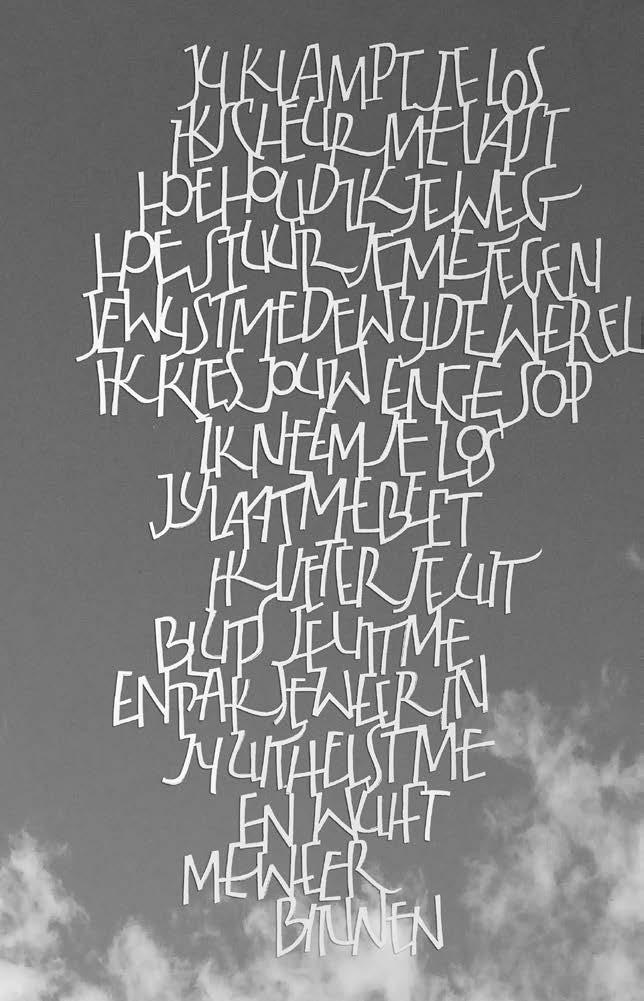 JY KLAMPT JE LOS
IK SCHEUR ME VAST
HOE HOUD IK JE WEG
HOE STUUR JE ME TEGEN
JE WYST ME DE WYDE WEREL
IK KIES JOUW ENGE SOP
IK NEEM JE LOS
JY LAAT ME BEET
IK VETER JE UIT
JE UIT ME
EN PAK JE WEER IN
JY UITHELST ME
EN WUIFT
ME WEER